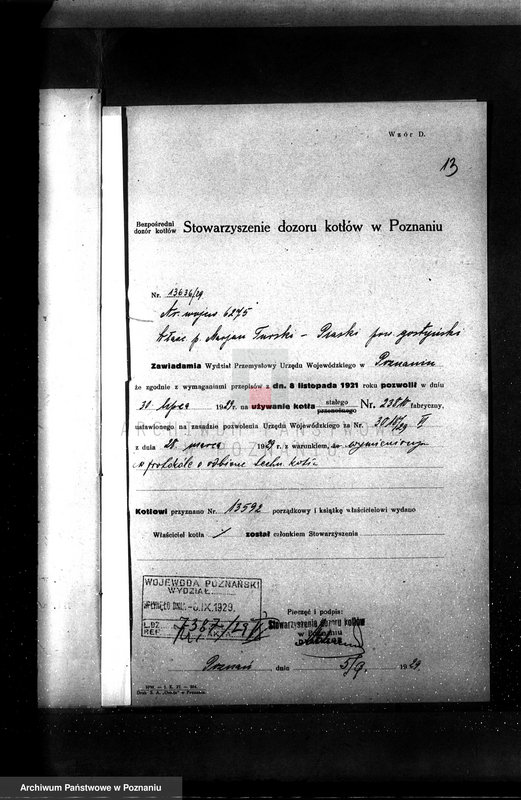 Wzór D.
13
Bezpośredni dozór kotłów Stowarzyszenie dozoru kotłów w Poznaniu
Nr. 13636/29
Nr. wojew 6275
Właśc p. Marjan Turski - Piaski pow. gostyński
Zawiadamia Wydział Przemysłowy Urzędu Wojewódzkiego w Poznaniu
że zgodnie z wymaganiami przepisów z dn. 8 listopada 1921 roku pozwolił w dniu
31 lipca 1929 r. na używanie kotła stałego przenośnego Nr. fabryczny,
ustawionego na zasadzie pozwolenia Urzędu Wojewódzkiego za Nr.
z dnia 28 marca 1929 r. z warunkiem,
w protokóle o odbiorze techn. kotła
Kotłowi przyznano Nr. 13592 porządkowy i książkę właścicielowi wydano
Właściciel kotła / został członkiem Stowarzyszenia
WOJEWODA POZNAŃSKI
WYDZIAŁ
WPŁYNĘŁO DNIA -6.IX.1929.
L.DZ. 7387/29 VI
REF.
Pieczęć i podpis:
Stowarzyszenia dozoru kotłów
w Poznaniu
Poznań dnia 5/9 1929
Archiwum Państwowe w Poznaniu